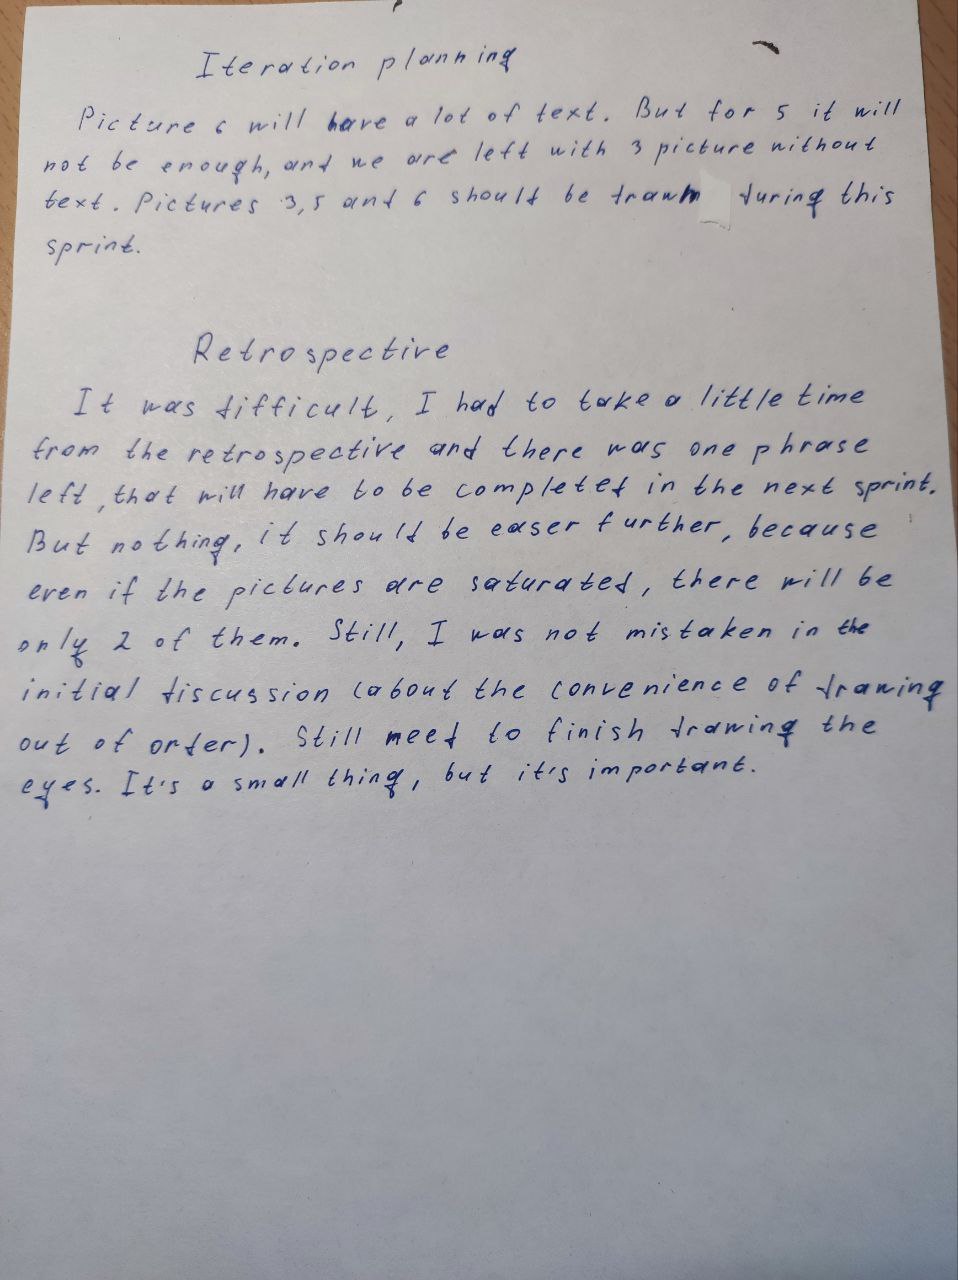 Iteration planning
Picture 6 will have a lot of text. But for 5 it will
not be enough, and we are left with 3 picture without
text. Pictures 3, 5 and 6 should be drawn during this
sprint.
Retrospective
It was difficult, I had to take a little time
from the retrospective and there was one phrase
left, that will have to be completed in the next sprint.
But nothing, it should be easer further, because
even if the pictures are saturated, there will be
only 2 of them. Still, I was not mistaken in the
initial discussion (about the convenience of drawing
out of order). Still need to finish drawing the
eyes. It's a small thing, but it's important.